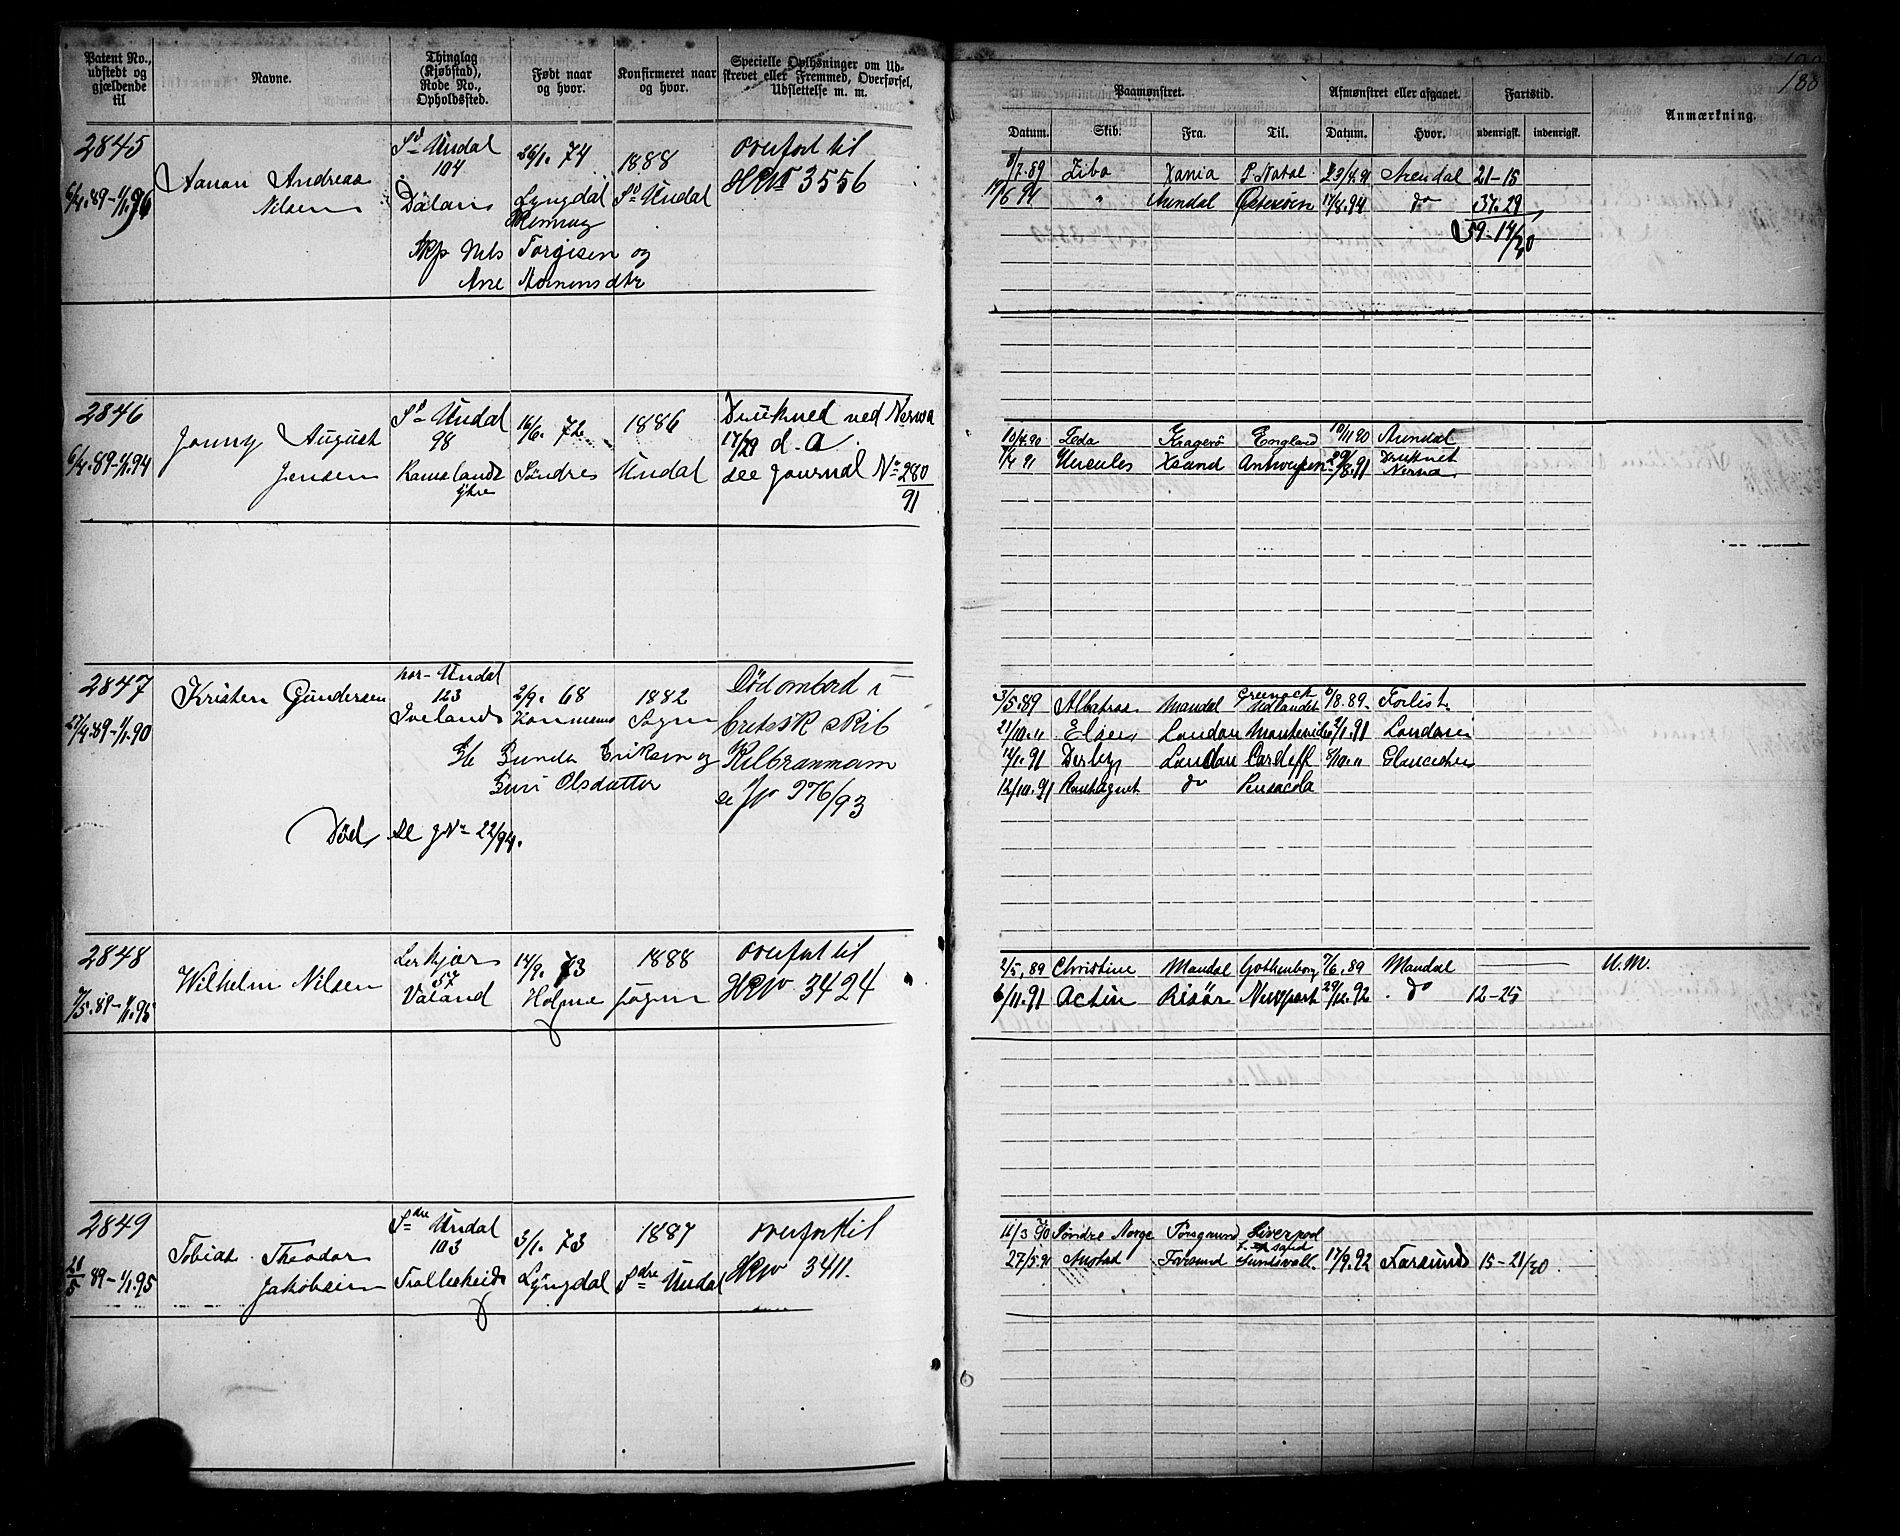 Patent No., udstedt og gjældende til
Navne.
Thinglag (Kjøbstad), Rode No., Opholdssted.
Født naar og hvor.
Konfirmeret naar og hvor.
Specielle Oplysninger om Udskrevet eller Fremmed, Overførsel, Udslettelse m. m.
Paamønstret.
Afmønstret eller afgaaet.
Fartstid.
Anmærkning.
188
Datum. Skib. Fra. Til. Datum. Hvor. udenrigsk. indenrigsk.
2845
6/4.89–1/1.96
Aanon Andreas
Nilsen
Sd Undal
104
Dålan
26/1. 74
Lyngdal
1888
Sd Undal
overført til
HRN 3556
Nils Torgisen og
Ane Aanonsdtr
8/7.89 Ziba Xania P. Natal 23/4.91 Arendal 21-15
14/6 94 " Arendal Østersøen 17/8.94 do 37.29
59-14/30
2846
6/4.89–1/1.94
Jonny August
Jensen
Sd Undal
98
16/6. 72
Søndre
1886
Undal
Drukned ved Nerva
17/29 d. a.
see journal No 280/91
10/4.90 Leda Kragerø England 10/11 90 Arendal
1/4 91 Hercules Xsand Antwerpen 29/8.91 Druknet Nerva
2847
27/4.89–1/1.90
Kristen Gundersen
nor-Undal
123
Ivelands
2/9. 68
1882
Sogn
Død ombord i
britisk skib
Kilbranman
se Jr 376/93
Gunder Eriksen og
Guri Olsdatter
Død se jNo 22/94.
3/5.89 Albatros Mandal Greenock Udlandet 6/8.89 Forlist.
21/10." Elsa London Montevideo 2/1.91 London
14/1.91 Derby London Cardiff 5/10." Gloucester
12/10.91 do Pensacola
2848
7/5.89–1/1.95
Wilhelm Nilsen
Lerkjær
57
Valand
14/9. 73
Holme
1888
sogn
overført til
HRN 3424
2/5.89 Christine Mandal Gothenborg 7/6.89 Mandal U.M.
6/11.91 Actin Risør Newport 29/12.92 do 12-25
2849
21/5 89–1/1.95
Tobias Theodor
Jakobsen
Sdre Undal
103
3/1. 73
Lyngdal
1887
Sdre Undal
overført til
HRN 3411.
11/3 90 Søndre Norge Porsgrund Liverpool
27/5.91 Farsund Sundsvall. 17/9.92 Farsund 15-21/30.